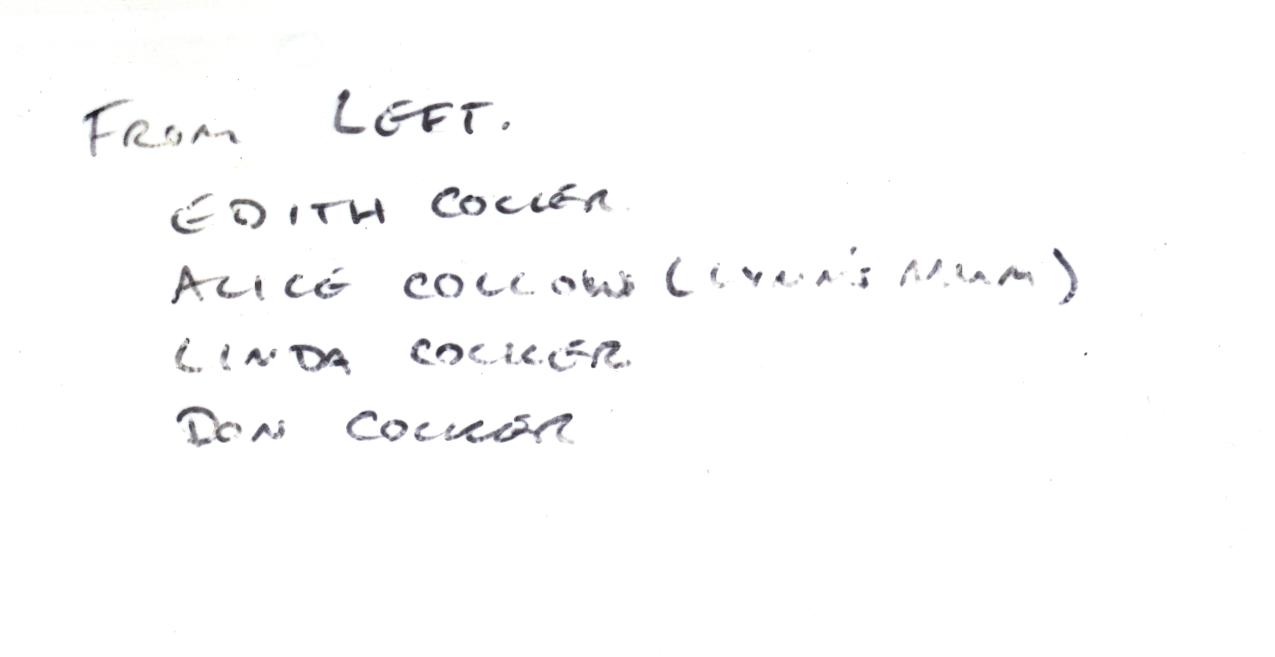 FROM LEFT.
EDITH COCKER
ALICE (LYNN'S MUM)
LINDA COCKER
DON COCKER